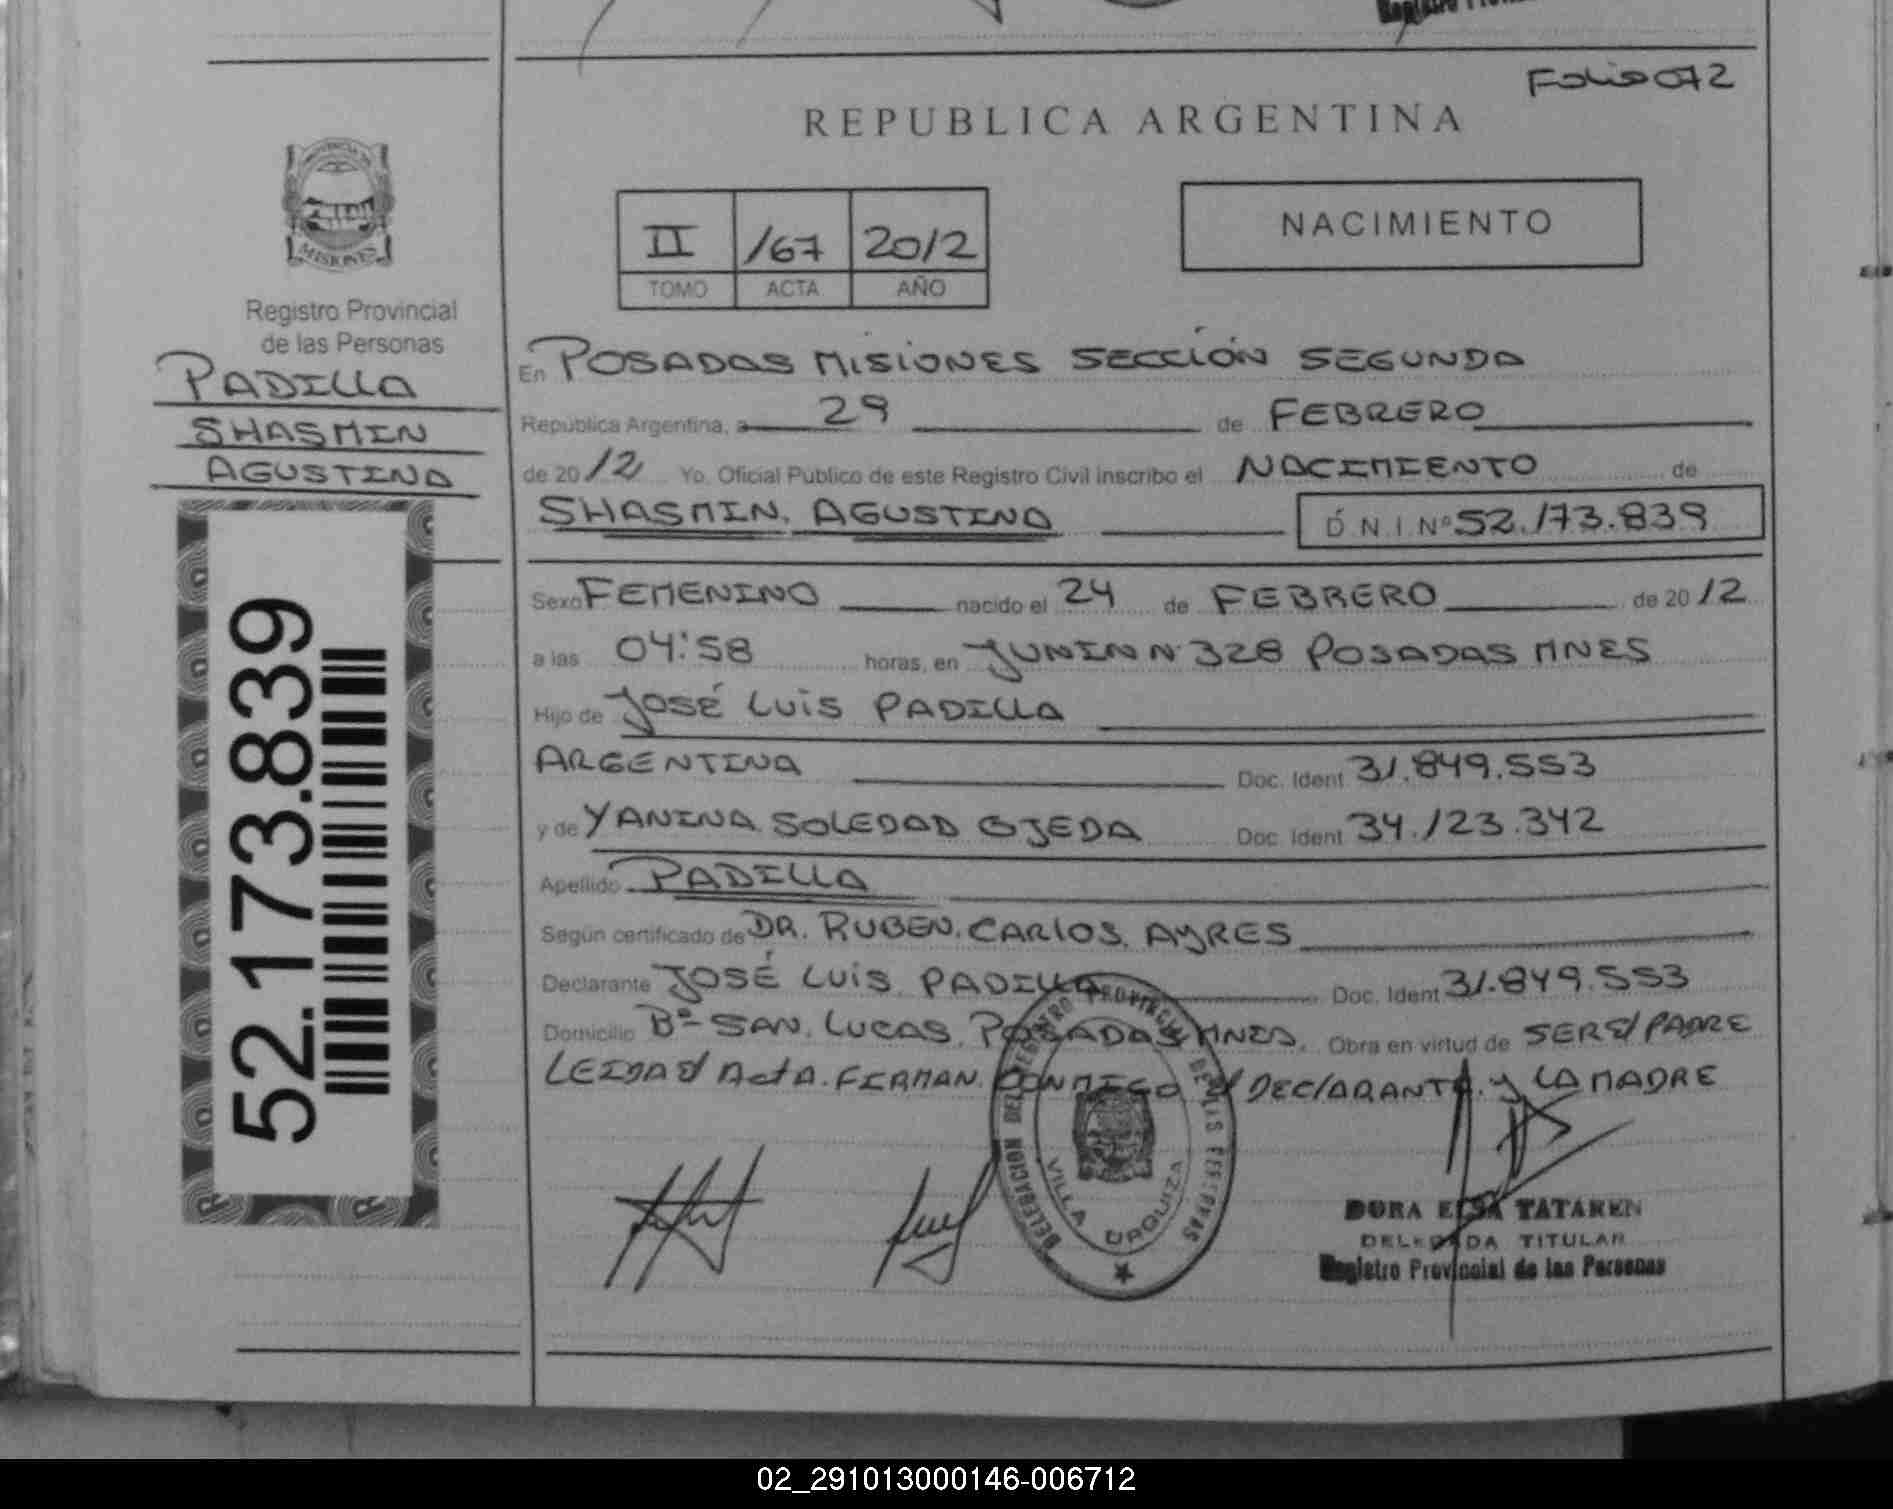 Folio 072
REPUBLICA ARGENTINA
PROVINCIA DE
MISIONES
Registro Provincial
de las Personas
PADILLA
SHASMIN
AGUSTINA
52.173.839
II 167 2012
TOMO ACTA AÑO
NACIMIENTO
En POSADAS MISIONES SECCIÓN SEGUNDA
República Argentina, a 29 de FEBRERO
de 2012 Yo, Oficial Público de este Registro Civil inscribo el NACIMIENTO de
SHASMIN, AGUSTINA D.N.I. Nº 52.173.839
Sexo FEMENINO nacido el 24 de FEBRERO de 2012
a las 04:58 horas, en JUNIN N 328 POSADAS MNES
Hijo de JOSÉ LUIS PADILLA
ARGENTINA Doc. Ident 31.849.553
y de YANINA SOLEDAD OJEDA Doc. Ident 34.123.342
Apellido PADILLA
Según certificado de DR. RUBEN. CARLOS. AYRES
Declarante JOSÉ LUIS PADILLA Doc. Ident 31.849.553
Domicilio Bº SAN. LUCAS. POSADAS MNES. Obra en virtud de SER El PADRE
LEIDA El ActA. FIRMAN. CONMIGO El DEClARANTE y LA MADRE
DELEGACION DEL REGISTRO PROVINCIAL DE LAS PERSONAS
VILLA URQUIZA
DORA ELSA TATAREN
DELEGADA TITULAR
Registro Provincial de las Personas
02_291013000146-006712